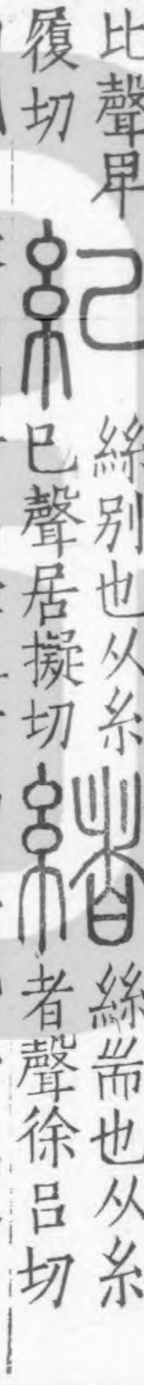 比聲卑履切
紀 絲別也从糸己聲居擬切
緒 絲耑也从糸者聲徐呂切